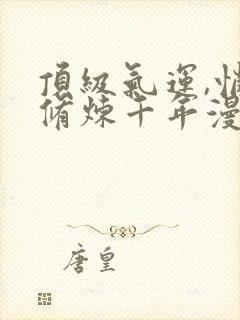 頂級氣運,悄
脩煉千年漫
唐皇